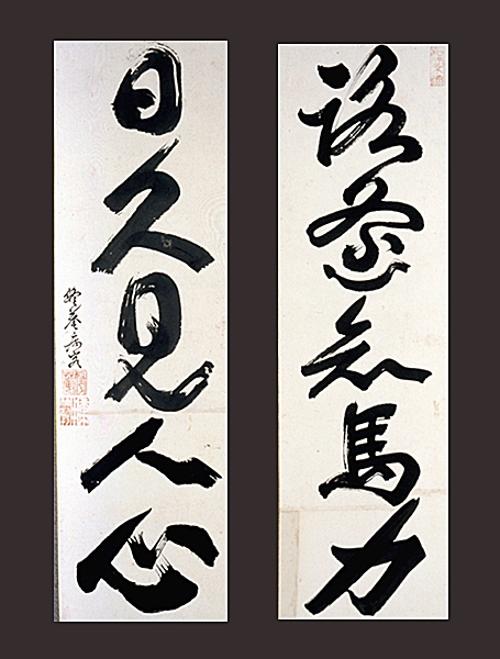 路遙知馬力
日久見人心